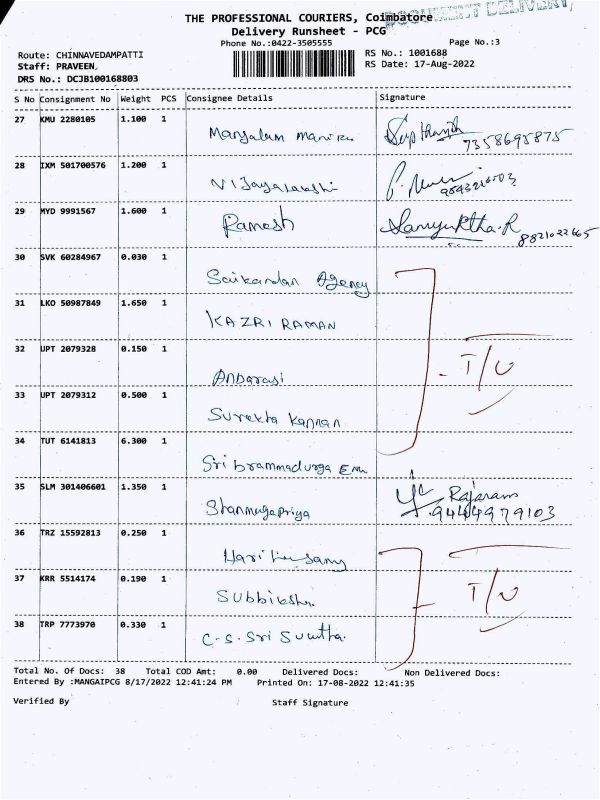 DOCUMENT DELIVERY
THE PROFESSIONAL COURIERS, Coimbatore
Delivery Runsheet - PCG
Phone No.:0422-3505555 Page No.:3
Route: CHINNAVEDAMPATTI RS No.: 1001688
Staff: PRAVEEN, RS Date: 17-Aug-2022
DRS No.: DCJB100168803
S No Consignment No Weight PCS Consignee Details Signature
27 KMU 2280105 1.100 1 Mangalam 7358695875
28 IXM 501700576 1.200 1 Vijayalakshi
29 MYD 9991567 1.600 1 Ramesh Samyuktha.R
30 SVK 60284967 0.030 1 Saikandan Agency
31 LKO 50987849 1.650 1 KAZRI RAMAN
32 UPT 2079328 0.150 1 Anbarasi T/U
33 UPT 2079312 0.500 1 Surekha Kannan
34 TUT 6141813 6.300 1 Sri brammadurga Em
35 SLM 301406601 1.350 1 Shanmugapriya Rajaram
9444979103
36 TRZ 15592813 0.250 1
37 KRR 5514174 0.190 1 Subbiksha T/U
38 TRP 7773970 0.330 1 C.S. Sri
Total No. Of Docs: 38 Total COD Amt: 0.00 Delivered Docs: Non Delivered Docs:
Entered By :MANGAIPCG 8/17/2022 12:41:24 PM Printed On: 17-08-2022 12:41:35
Verified By Staff Signature